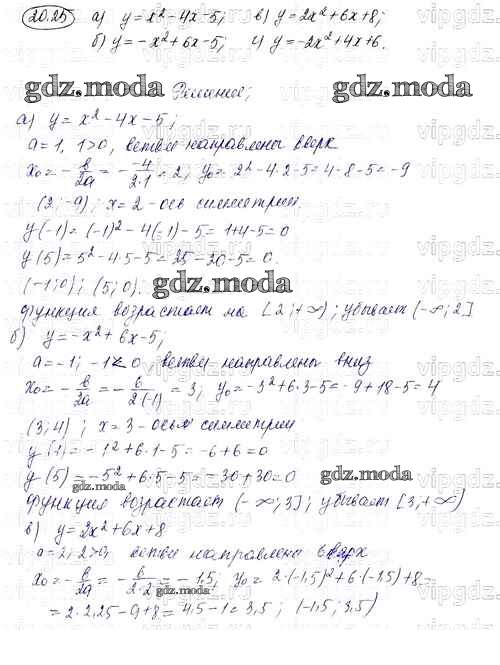 20.25 а) y=x²-4x-5; в) y=2x²+6x+8;
б) y=-x²+6x-5; г) y=-2x²+4x+6.
gdz.moda Решение; gdz.moda
а) y=x²-4x-5;
a=1, 1>0, ветви направлены вверх
x₀=-в/2a=-(-4)/2·1=2; y₀=2²-4·2-5=4-8-5=-9
(2;-9); x=2-ось симметрии
y(-1)=(-1)²-4(-1)-5=1+4-5=0
y(5)=5²-4·5-5=25-20-5=0.
(-1;0); (5;0). gdz.moda
функция возрастает на [2;+∞); убывает (-∞;2]
б) y=-x²+6x-5;
a=-1; -1<0 ветви направлены вниз
x₀=-в/2a=-6/2(-1)=3; y₀=-3²+6·3-5=-9+18-5=4
(3;4); x=3-ось симметрии
y(1)=-1²+6·1-5=-6+6=0
y(5)=-5²+6·5-5=-30+30=0 gdz.moda
gdz.moda
функция возрастает (-∞;3]; убывает [3;+∞)
в) y=2x²+6x+8
a=2, 2>0, ветви направлены вверх
x₀=-в/2a=-6/2·2=-1,5; y₀=2·(-1,5)²+6·(-1,5)+8=
=2·2,25-9+8=4,5-1=3,5; (-1,5; 3,5)
gdz.moda gdz.moda